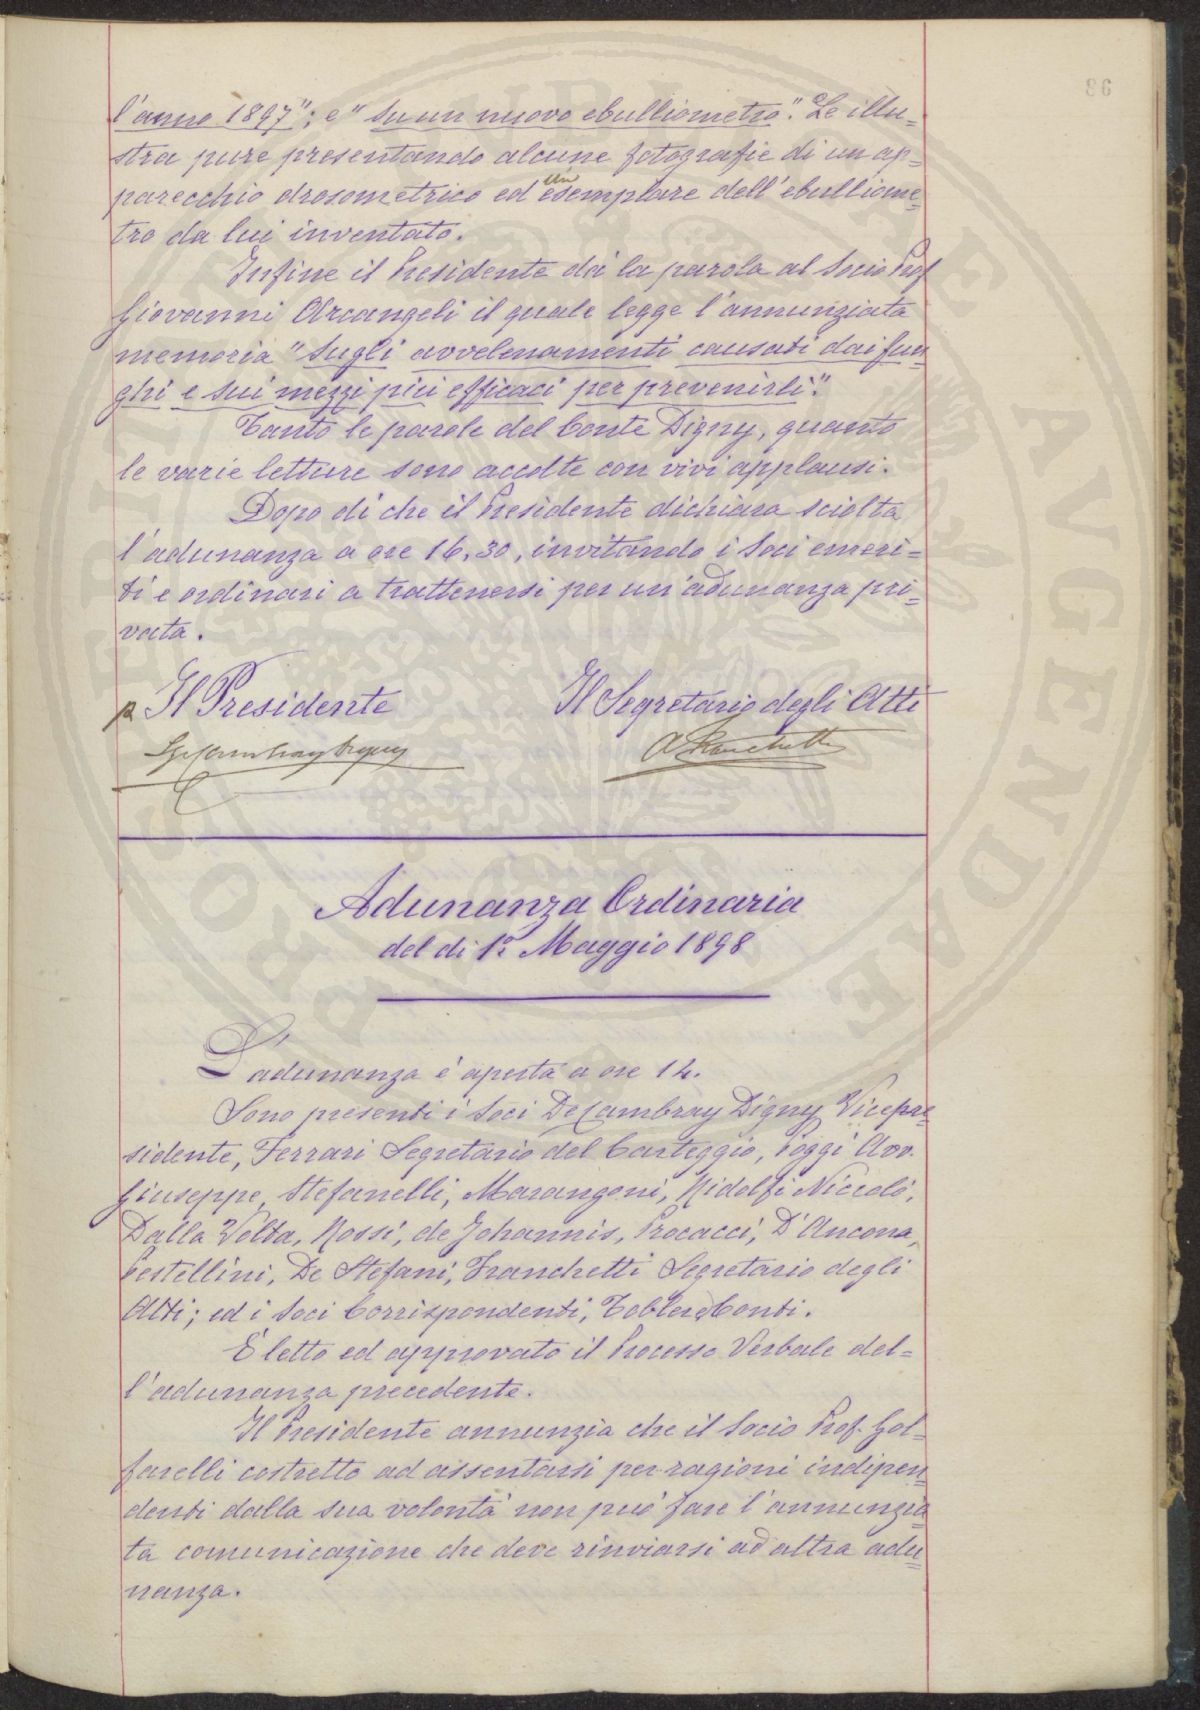 l'anno 1897"; e "Su un nuovo ebulliometro". Le illu=
stra pure presentando alcune fotografie di un ap=
parecchio drosometrico ed un esemplare dell'ebulliome=
tro da lui inventato.
Infine il Presidente dà la parola al Socio Prof
Giovanni Arcangeli il quale legge l'annunziata
memoria "Sugli avvelenamenti causati dai fun=
ghi e sui mezzi più efficaci per prevenirli".
Tanto le parole del Conte Digny, quanto
le varie letture sono accolte con vivi applausi.
Dopo di che il Presidente dichiara sciolta
l'adunanza a ore 16,30, invitando i Soci emeri=
ti e ordinari a trattenersi per un'adunanza pri=
vata.
p. Il Presidente Il Segretario degli Atti
LG de Cambray Digny A Franchetti
Adunanza Ordinaria
del dì 1º Maggio 1898
L'adunanza è aperta a ore 14.
Sono presenti i Soci De Cambray Digny Vicepre=
sidente, Ferrari Segretario del Carteggio, Poggi Avv.
Giuseppe, Stefanelli, Marangoni, Ridolfi Niccolò,
Dalla Volta, Rossi, de Johannis, Procacci, D'Ancona,
Pestellini, De Stefani, Franchetti Segretario degli
Atti; ed i Soci Corrispondenti, Tobler e Conti.
È letto ed approvato il Processo Verbale del=
l'adunanza precedente.
Il Presidente annunzia che il Socio Prof. Gol=
farelli costretto ad assentarsi per ragioni indipen=
denti dalla sua volontà non può fare l'annunzia=
ta comunicazione che deve rinviarsi ad altra adu=
nanza.